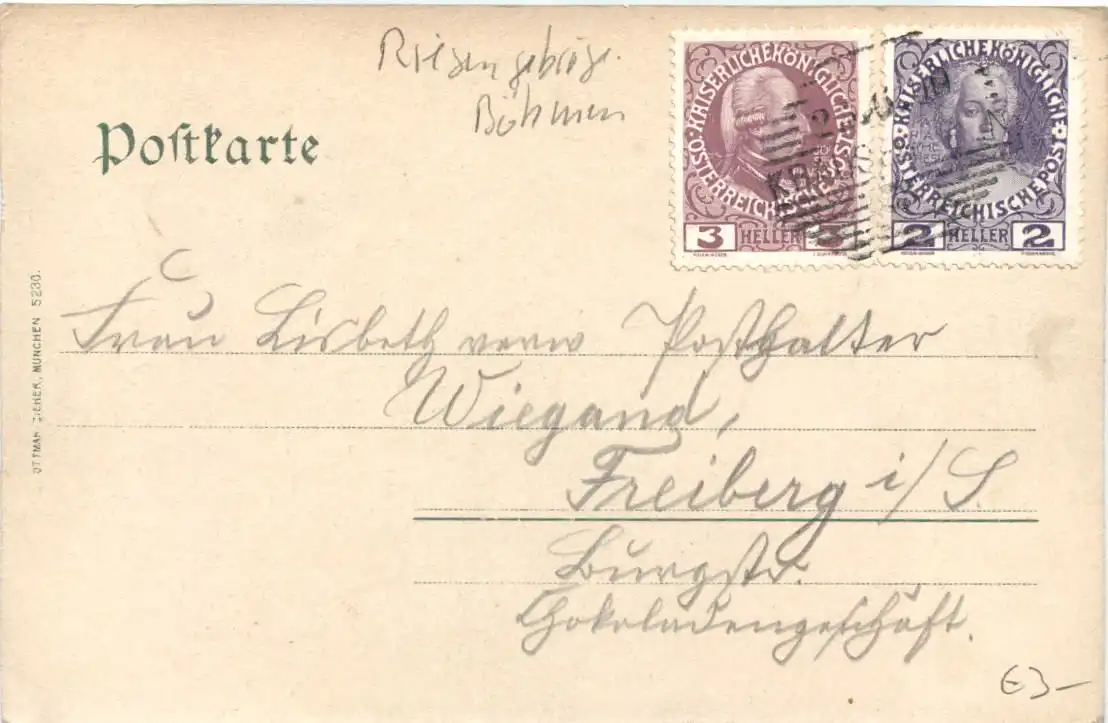 Riesengebirge.
Böhmen
Postkarte
KAISERLICHE KÖNIGLICHE
ÖSTERREICHISCHE POST
3 HELLER 3
KAISERLICHE KÖNIGLICHE
ÖSTERREICHISCHE POST
2 HELLER 2
Frau Lisbeth verw Posthalter
Wiegand,
Freiberg i/S.
Burgstr.
Chokoladengeschäft.
OTTMAR ZIEHER, MÜNCHEN 5230.
€3-